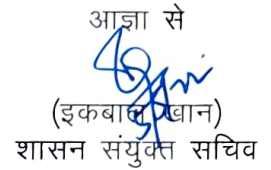 आज्ञा से
(इकबाल खान)
शासन संयुक्त सचिव